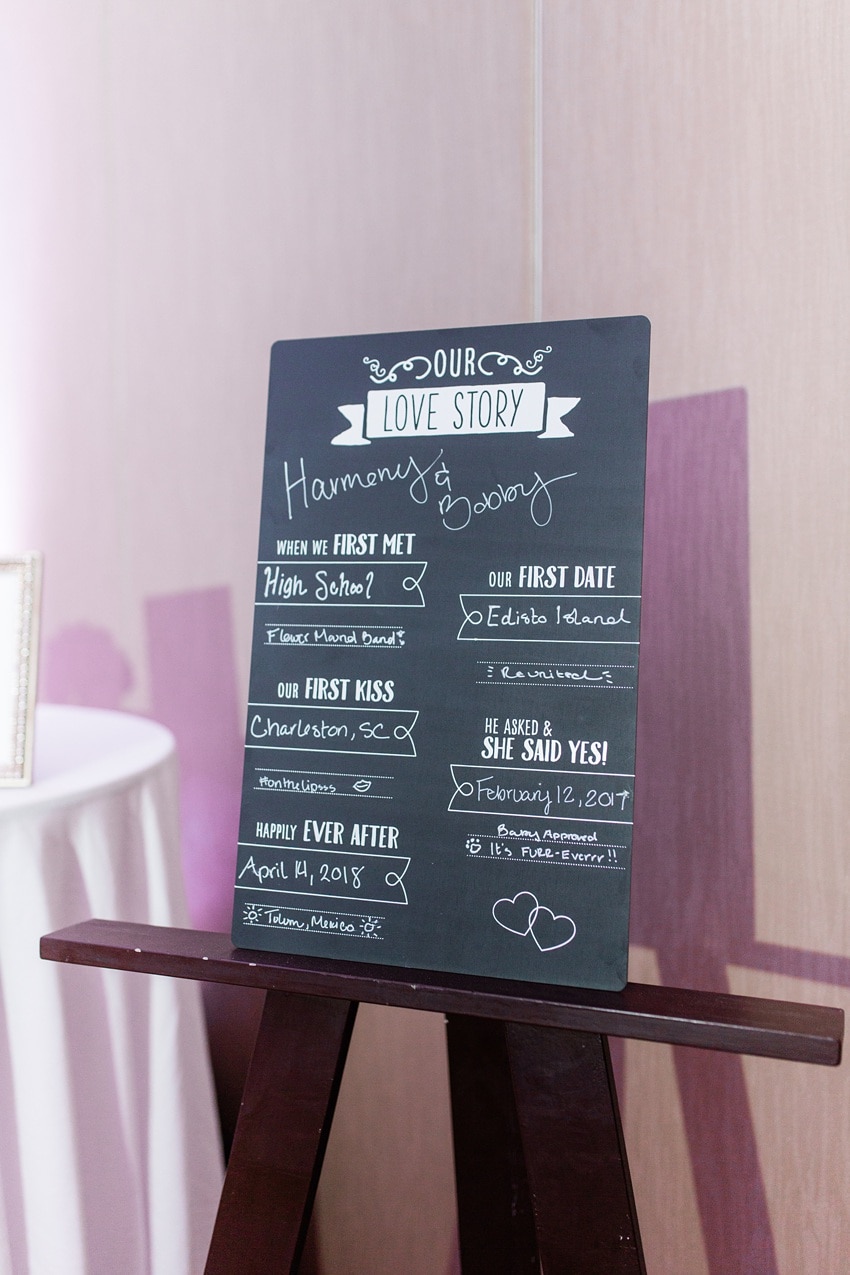 OUR
LOVE STORY
Harmony & Bobby
WHEN WE FIRST MET
High School
Flower Mound Band
OUR FIRST KISS
Charleston, SC
#onthelipsss
HAPPILY EVER AFTER
April 14, 2018
Tulum, Mexico
OUR FIRST DATE
Edisto Island
Reunited
HE ASKED &
SHE SAID YES!
February 12, 2017
Barry Approved
It's FURR-Everrr!!